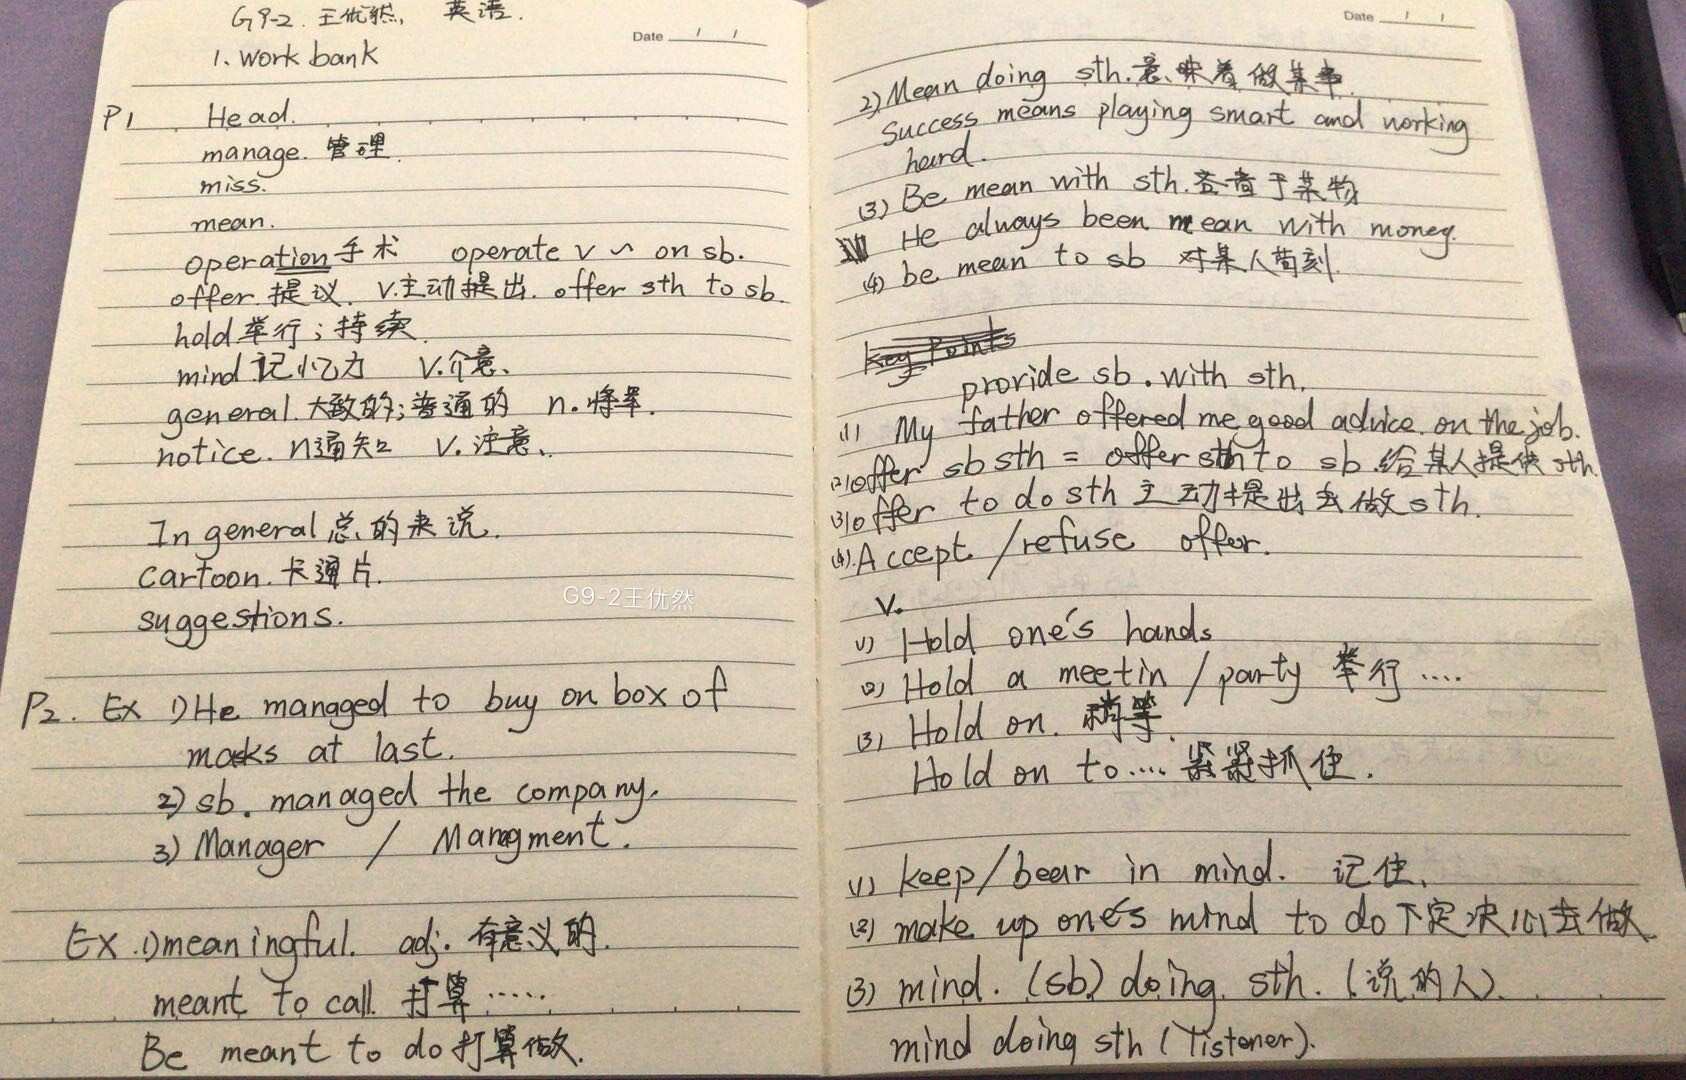 G9-2. 王优然, 英语.
Date
1. work bank
P1 Head.
manage. 管理.
miss.
mean.
operation手术 operate v ~ on sb.
offer.提议. v.主动提出. offer sth to sb.
hold举行；持续.
mind.记忆力 v.介意、
general.大致的；普通的 n.将军.
notice. n通知 v.注意、
In general总的来说.
Cartoon.卡通片.
suggestions.
G9-2王优然
P2. Ex 1)He managed to buy on box of
masks at last.
2) sb. managed the company.
3) Manager / Mangment.
Ex.1)meaningful. adj. 有意义的.
meant to call 打算……
Be meant to do打算做.
Date
2) Mean doing sth.意味着做某事.
Success means playing smart and working
hard.
(3) Be mean with sth.吝啬于某物
He always been mean with money.
(4) be mean to sb 对某人苛刻.
Key Points
provide sb. with sth.
(1) My father offered me good advice on the job.
(2) offer sb sth = offer sth to sb.给某人提供sth.
(3) offer to do sth 主动提出去做sth.
(4). Accept /refuse offer.
V.
(1) Hold one's hands
(2) Hold a meetin / party 举行….
(3) Hold on. 稍等.
Hold on to…. 紧紧抓住.
(1) keep/bear in mind. 记住、
(2) make up one's mind to do下定决心去做
(3) mind. (sb) doing sth. (说的人).
mind doing sth (listener).